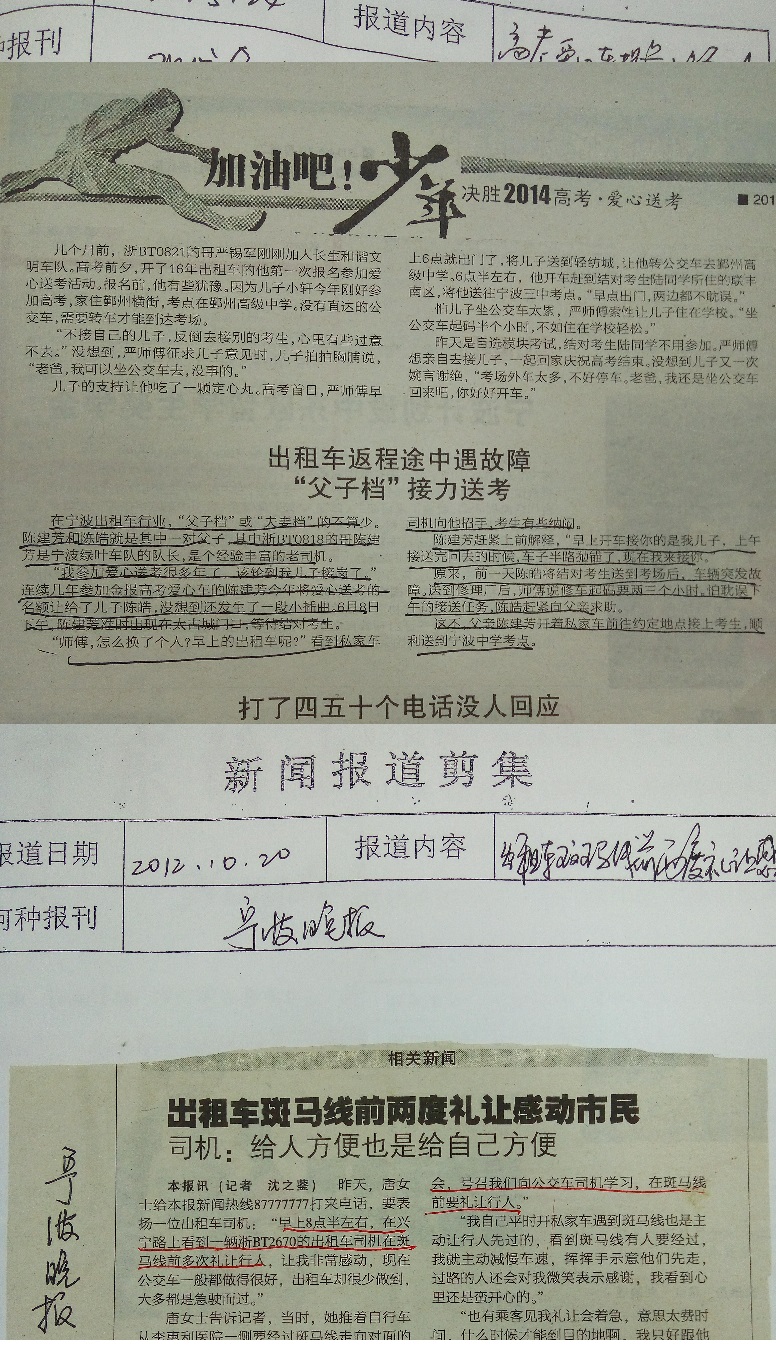 报道内容
报刊
加油吧！少年
决胜2014高考·爱心送考
■201
几个月前，浙BT0821的哥严锡军刚刚加入长生和谐文
明车队。高考前夕，开了16年出租车的他第一次报名参加爱
心送考活动。报名前，他有些犹豫，因为儿子小轩今年刚好参
加高考，家住鄞州横街，考点在鄞州高级中学。没有直达的公
交车，需要转车才能到达考场。
“不接自己的儿子，反倒去接别的考生，心里有些过意
不去。”没想到，严师傅征求儿子意见时，儿子拍拍胸脯说，
“老爸，我可以坐公交车去，没事的。”
儿子的支持让他吃了一颗定心丸。高考首日，严师傅早
上6点就出门了，将儿子送到轻纺城，让他转公交车去鄞州高
级中学。6点半左右，他开车赶到结对考生陆同学所住的联丰
南区，将他送往宁波三中考点。“早点出门，两边都不耽误。”
怕儿子坐公交车太累，严师傅索性让儿子住在学校。“坐
公交车起码半个小时，不如住在学校轻松。”
昨天是自选模块考试，结对考生陆同学不用参加。严师傅
想亲自去接儿子，一起回家庆祝高考结束。没想到儿子又一次
婉言谢绝，“考场外车太多，不好停车。老爸，我还是坐公交车
回来吧，你好好开车。”
出租车返程途中遇故障
“父子档”接力送考
在宁波出租车行业，“父子档”或“夫妻档”的不算少。
陈建芳和陈皓就是其中一对父子，其中浙BT0818的哥陈建
芳是宁波绿叶车队的队长，是个经验丰富的老司机。
“我参加爱心送考很多年了，该轮到我儿子接岗了。”
连续几年参加金报高考爱心车的陈建芳今年将爱心送考的
名额让给了儿子陈皓，没想到还发生了一段小插曲。6月8日
下午，陈建芳准时出现在太古城门口，等待结对考生。
“师傅，怎么换了个人？早上的出租车呢？”看到私家车
司机向他招手，考生有些纳闷。
陈建芳赶紧上前解释，“早上开车接你的是我儿子，上午
接送完回去的时候，车子半路抛锚了，现在我来接你。”
原来，前一天陈皓将结对考生送到考场后，车辆突发故
障，送到修理厂后，师傅说修车起码要两三个小时。怕耽误下
午的接送任务，陈皓赶紧向父亲求助。
这不，父亲陈建芳开着私家车前往约定地点接上考生，顺
利送到宁波中学考点。
打了四五十个电话没人回应
新闻报道剪集
报道日期
2012.10.20
报道内容
出租车斑马线前两度礼让感
何种报刊
宁波晚报
相关新闻
出租车斑马线前两度礼让感动市民
司机：给人方便也是给自己方便
宁波晚报
本报讯（记者 沈之蓥） 昨天，唐女
士给本报新闻热线87777777打来电话，要表
扬一位出租车司机：“早上8点半左右，在兴
宁路上看到一辆浙BT2670的出租车司机在斑
马线前多次礼让行人，让我非常感动，现在
公交车一般都做得很好，出租车却很少做到，
大多都是急驶而过。”
唐女士告诉记者，当时，她推着自行车
从李惠利医院一侧要经过斑马线走向对面的
会，号召我们向公交车司机学习，在斑马线
前要礼让行人。”
“我自己平时开私家车遇到斑马线也是主
动让行人先过的，看到斑马线有人要经过，
我就主动减慢车速，挥挥手示意他们先走，
过路的人还会对我微笑表示感谢，我看到心
里还是蛮开心的。”
“也有乘客见我礼让会着急，意思太费时
间，什么时候才能到目的地啊，我只好跟他